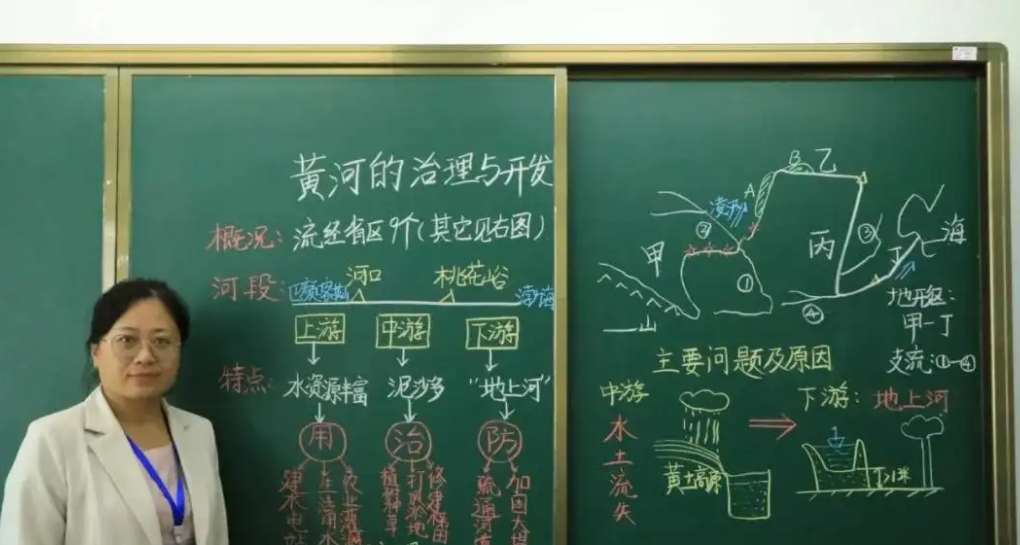 黄河的治理与开发
概况：流经省区9个（其它见右图）
河口 桃花峪
河段：巴颜喀拉 渤海
上游 中游 下游
特点：水资源丰富 泥沙多 “地上河”
用 治 防
建水电站
植树种草
打坝淤地
修建梯田
疏通河道
加固大堤
乙
A
凌汛
③
甲
①
丙
②
丁
海
④
山
地形区：
甲一丁
支流：①—④
主要问题及原因
中游
水土流失
黄土高原
下游：地上河